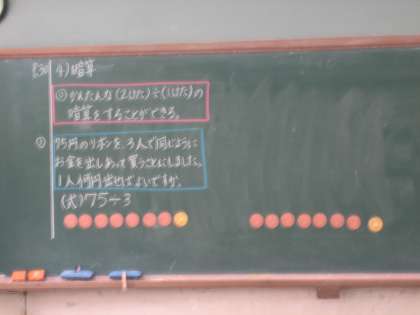 4) 暗算
◎かんたんな(2けた)÷(1けた)の
暗算をすることができる。
75円のリボンを、3人で同じように
お金を出しあって買うことにしました。
1人何円出せばよいですか。
(式) 75÷3